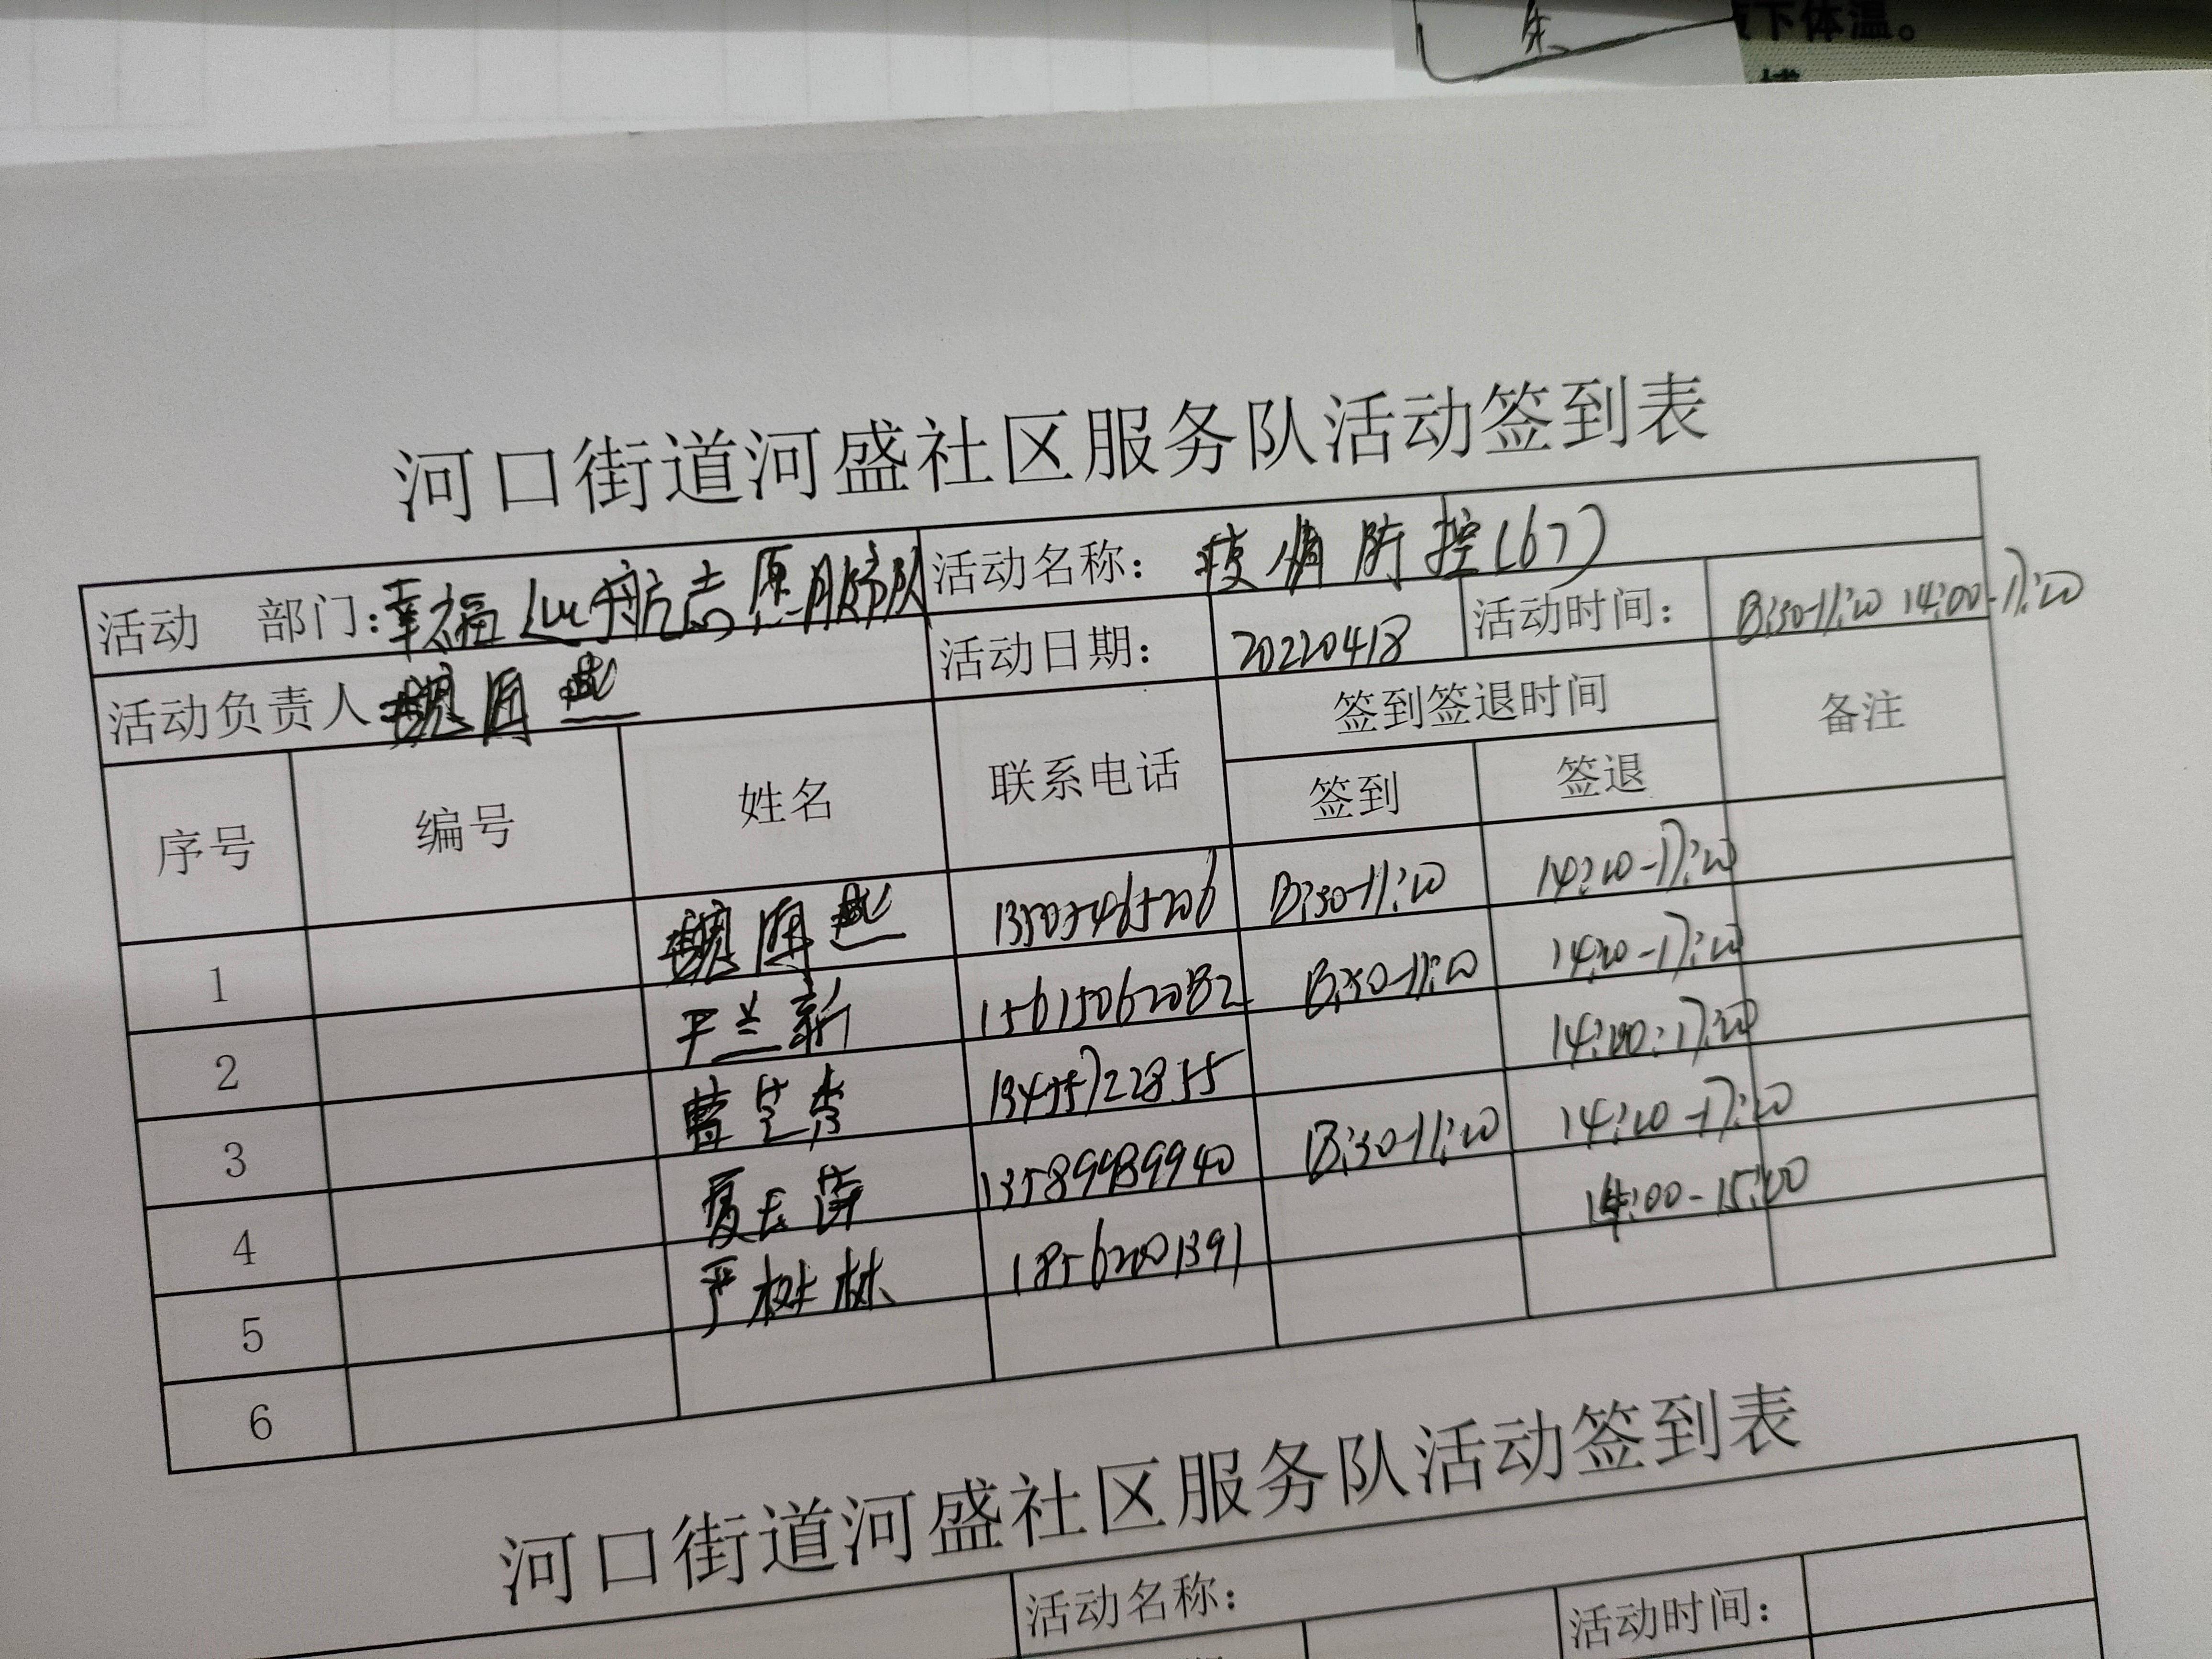 朱
腋下体温。
河口街道河盛社区服务队活动签到表
活动 部门:幸福远航志愿服务队 活动名称: 疫情防控(67)
活动负责人 活动日期: 20220418 活动时间: 8:30-11:20 14:00-17:20
序号 编号 姓名 联系电话 签到签退时间 备注
签到 签退
1 8:30-11:20 14:20-17:20
2 于兰新 15615062082 8:30-11:20 14:20-17:20
3 曹芝秀 13455722855 14:20:17:20
4 13589989940 8:30-11:20 14:20-17:20
5 严树林 18562001391 14:00-15:00
6
河口街道河盛社区服务队活动签到表
活动名称:
活动时间: